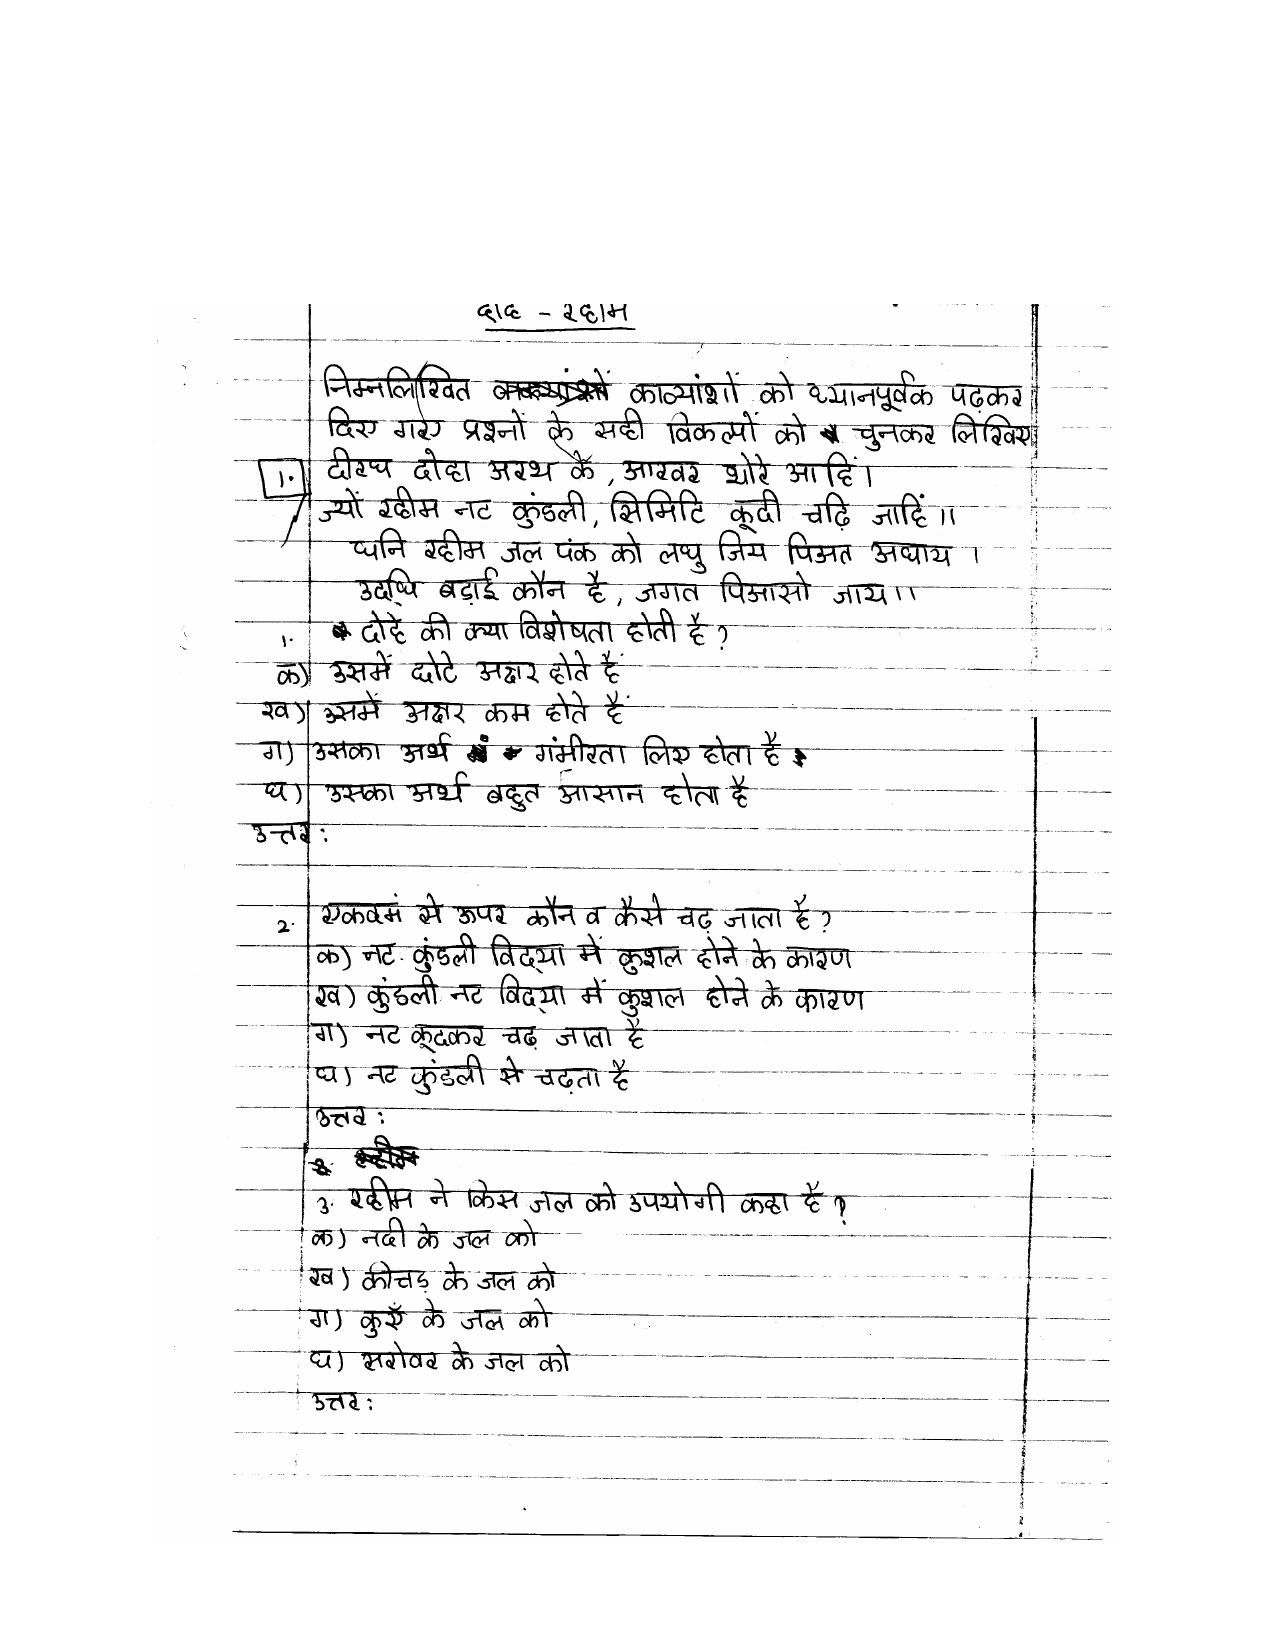 दोहे - रहीम
निम्नलिखित काव्यांशों को ध्यानपूर्वक पढ़कर
दिए गए प्रश्नों के सही विकल्पों को चुनकर लिखिए
1. दीरघ दोहा अरथ के, आखर थोरे आहिं।
ज्यों रहीम नट कुंडली, सिमिटि कूदी चढ़ि जाहिं॥
धनि रहीम जल पंक को लघु जिय पिअत अघाय।
उदधि बड़ाई कौन है, जगत पिआसो जाय॥
1. दोहे की क्या विशेषता होती है?
क) उसमें छोटे अक्षर होते हैं
ख) उसमें अक्षर कम होते हैं
ग) उसका अर्थ गंभीरता लिए होता है
घ) उसका अर्थ बहुत आसान होता है
उत्तर:
2. एकदमं से ऊपर कौन व कैसे चढ़ जाता है?
क) नट कुंडली विद्या में कुशल होने के कारण
ख) कुंडली नट विद्या में कुशल होने के कारण
ग) नट कूदकर चढ़ जाता है
घ) नट कुंडली से चढ़ता है
उत्तर:
3. रहीम ने किस जल को उपयोगी कहा है?
क) नदी के जल को
ख) कीचड़ के जल को
ग) कुएँ के जल को
घ) सरोवर के जल को
उत्तर: